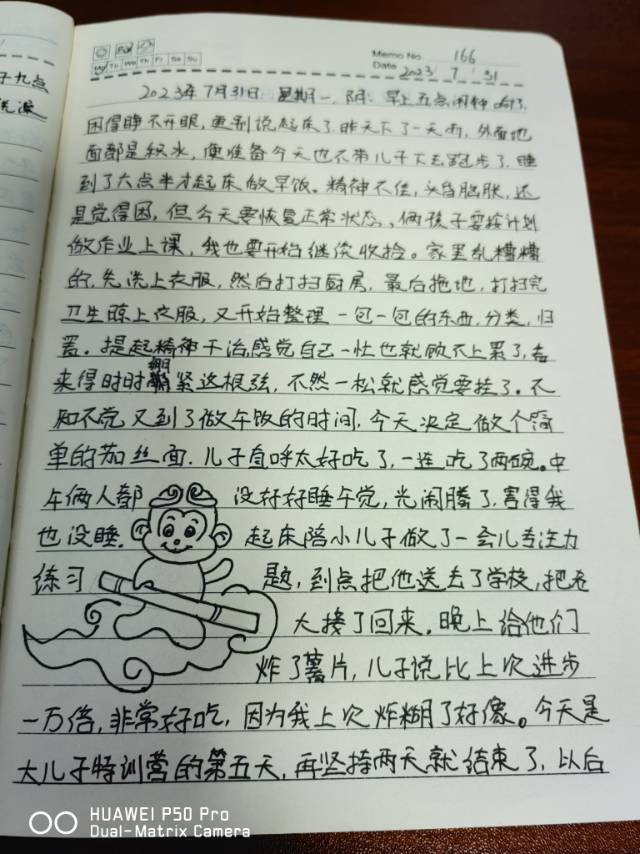 子九点
洗澡
Mo Tu We Th Fr Sa Su
Memo No. 166
Date 2023 / 7 / 31
2023年7月31日 星期一 阴 早上五点闹钟响了,
困得睁不开眼,更别说起床了,昨天下了一天雨,外面地
面都是积水,便准备今天也不带儿子下去跑步了,睡
到了六点半才起床做早饭。精神不佳,头昏脑胀,还
是觉得困,但今天要恢复正常状态,俩孩子要按计划
做作业上课,我也要开始继续收捡。家里乱糟糟
的,先洗上衣服,然后打扫厨房,最后拖地,打扫完
卫生晾上衣服,又开始整理一包一包的东西,分类,归
置。提起精神干活感觉自己一忙也就顾不上累了,看
来得时时绷紧这根弦,不然一松就感觉要挂了。不
知不觉又到了做午饭的时间,今天决定做个简
单的茄丝面,儿子直呼太好吃了,一连吃了两碗。中
午俩人都没好好睡午觉,光闹腾了,害得我
也没睡。起床陪小儿子做了一会儿专注力
练习题,到点把他送去了学校,把老
大接了回来,晚上给他们
炸了薯片,儿子说比上次进步
一万倍,非常好吃,因为我上次炸糊了好像。今天是
大儿子特训营的第五天,再坚持两天就结束了,以后
HUAWEI P50 Pro
Dual-Matrix Camera